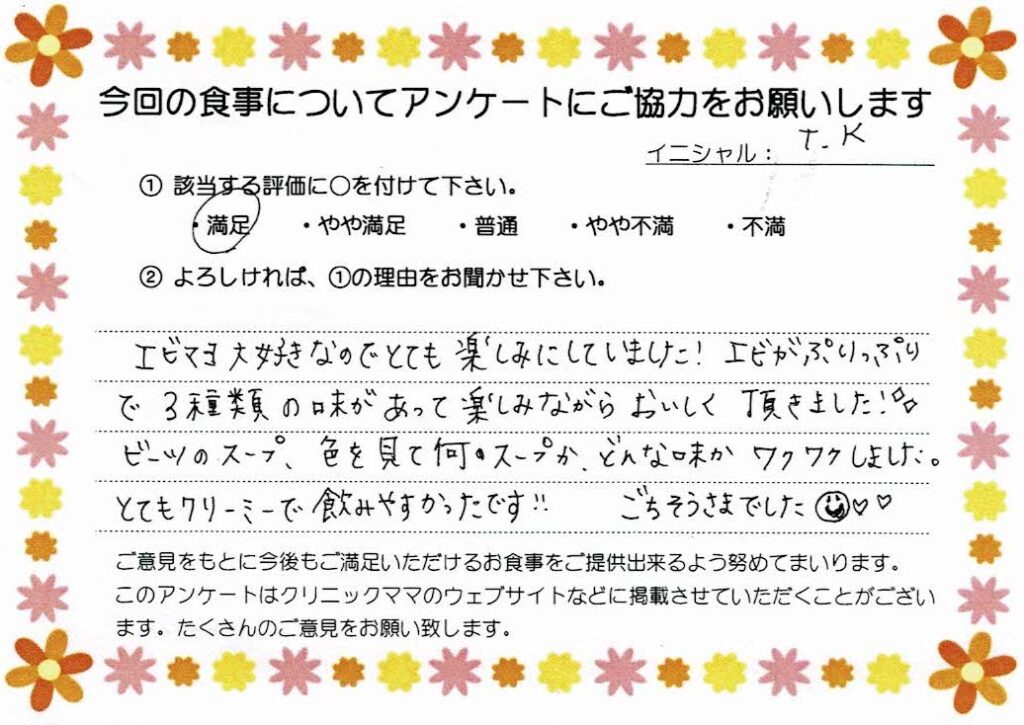 今回の食事についてアンケートにご協力をお願いします
イニシャル： T.K
① 該当する評価に○を付けて下さい。
・満足 ・やや満足 ・普通 ・やや不満 ・不満
② よろしければ、①の理由をお聞かせ下さい。
エビマヨ大好きなのでとても楽しみにしていました！エビがぷりっぷり
で3種類の味があって楽しみながらおいしく頂きました！
ビーツのスープ、色を見て何のスープか、どんな味かワクワクしました。
とてもクリーミーで飲みやすかったです!! ごちそうさまでした☺♡♡
ご意見をもとに今後もご満足いただけるお食事をご提供出来るよう努めてまいります。
このアンケートはクリニックママのウェブサイトなどに掲載させていただくことがござい
ます。たくさんのご意見をお願い致します。